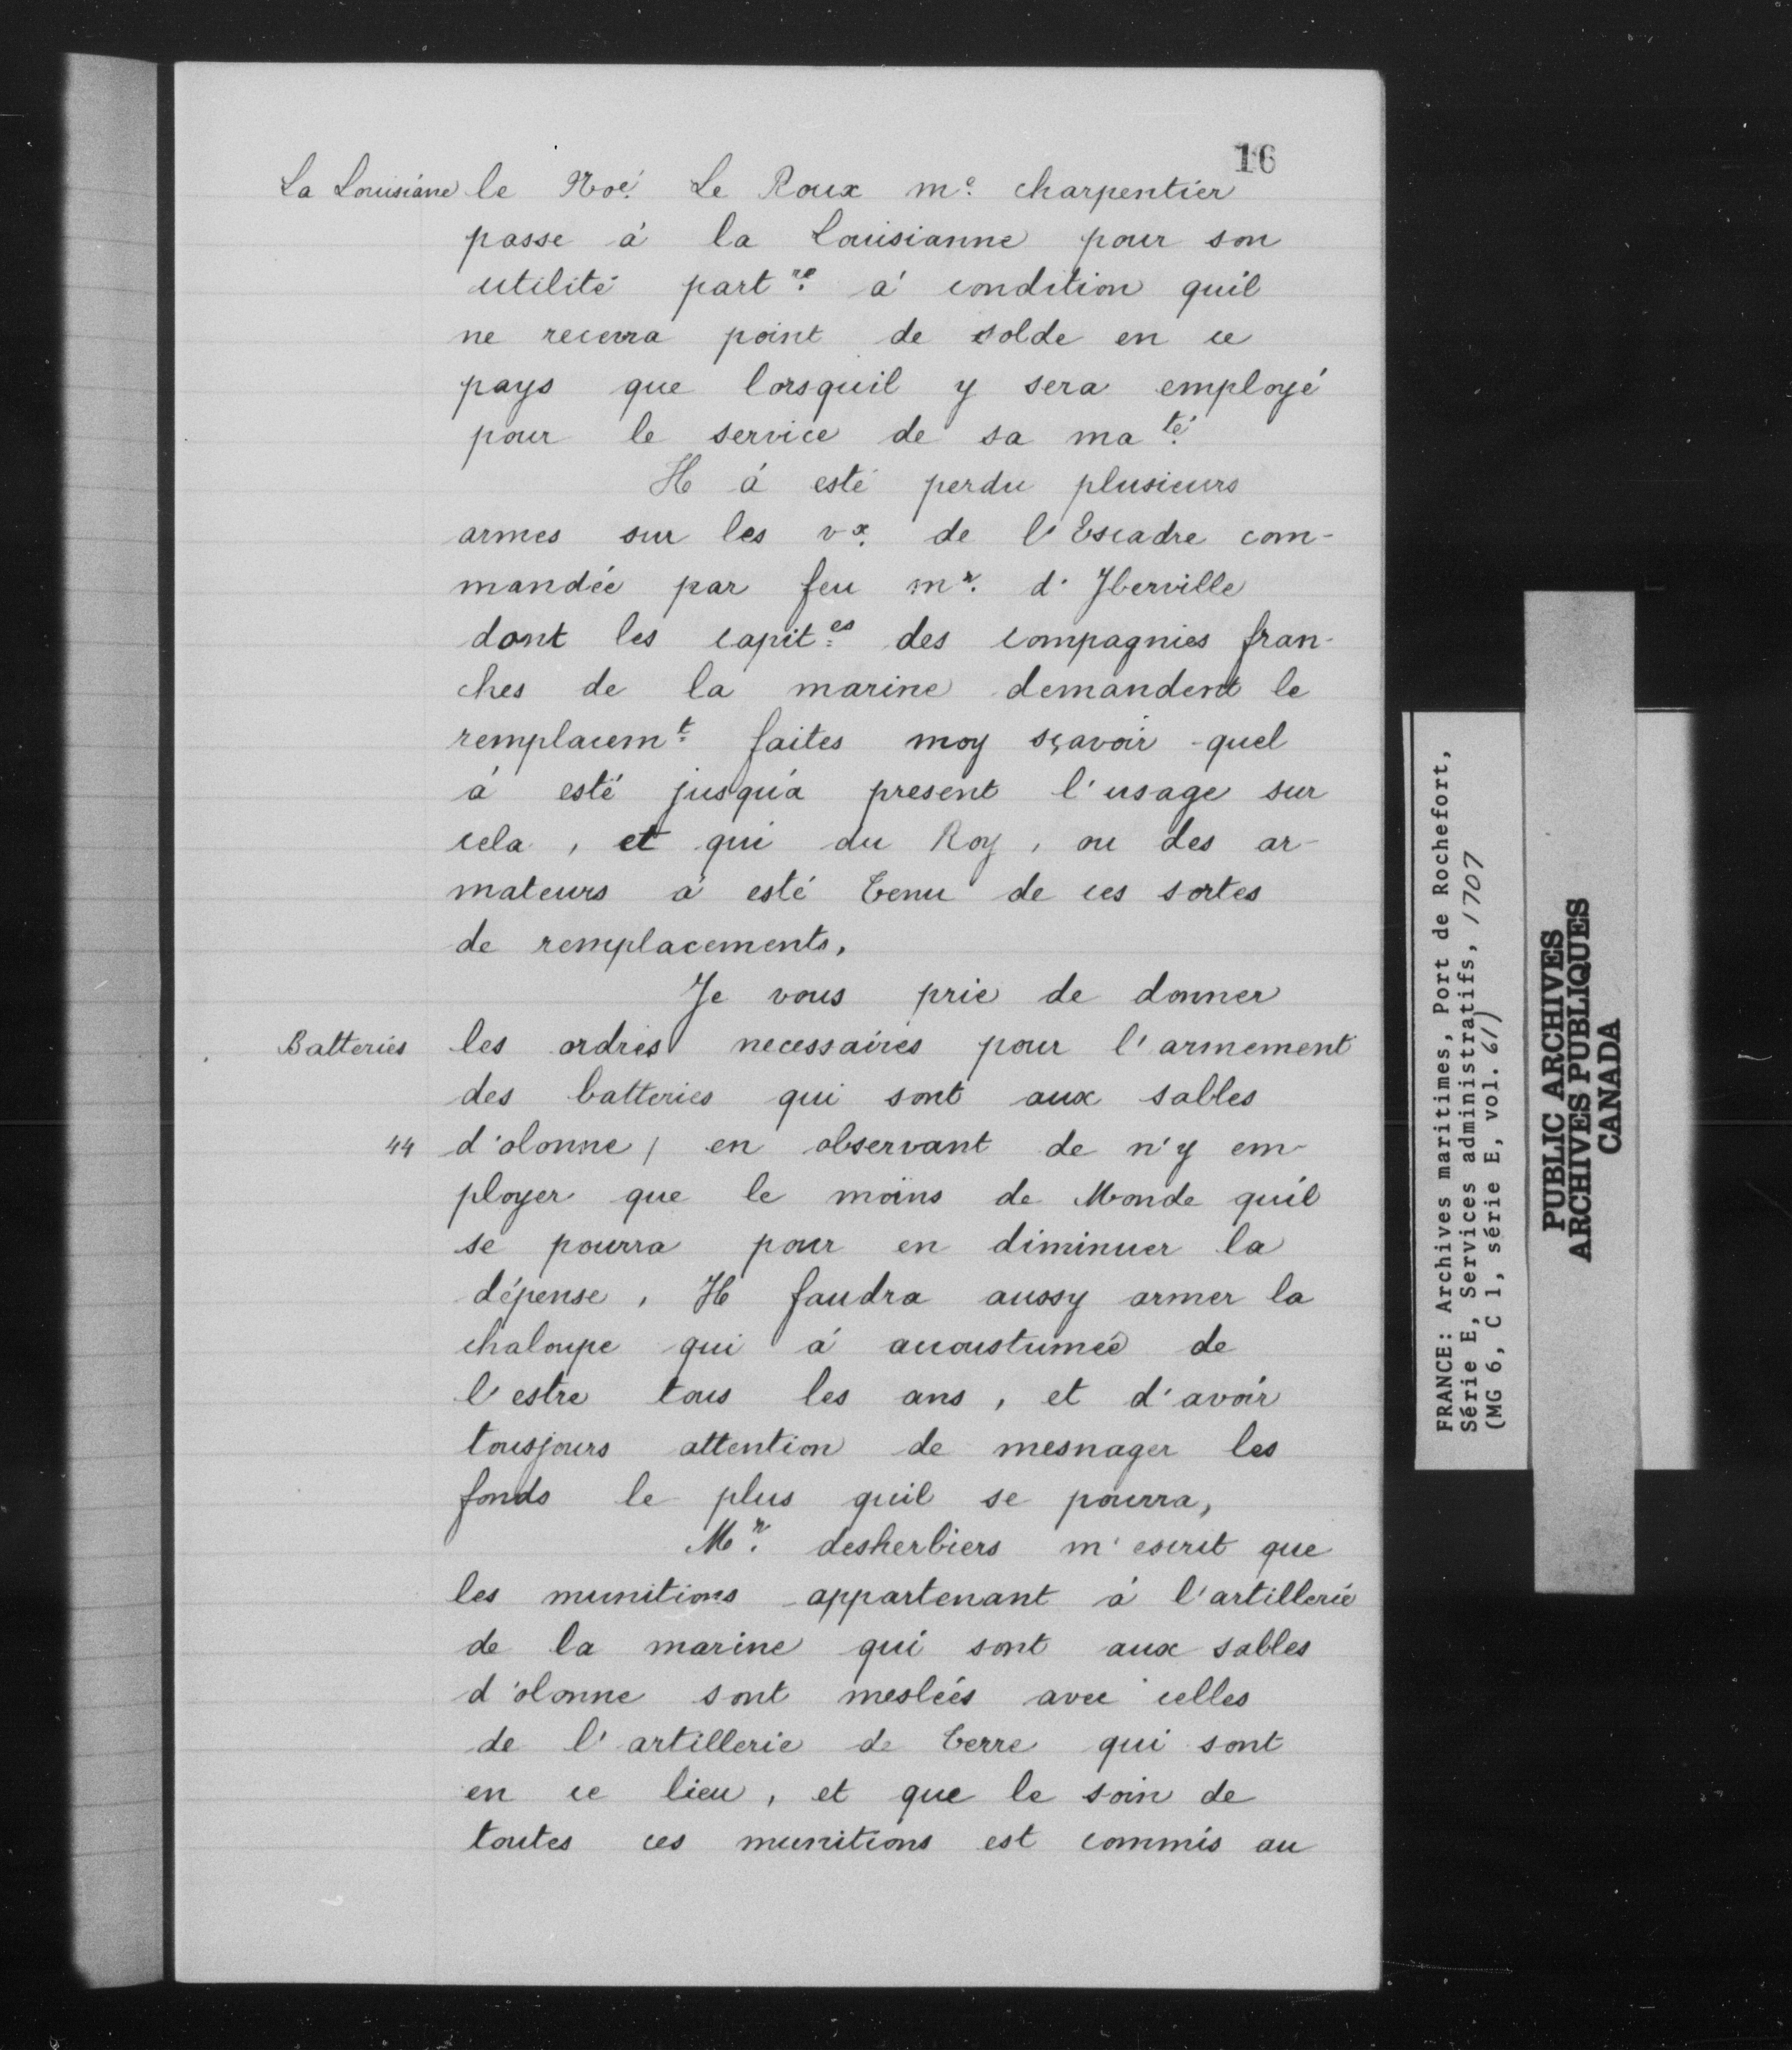 16
La Louisiane le Noé. Le Roux me. charpentier
passe à la Louisianne pour son
utilité part.re à condition quil
ne recevra point de solde en ce
pays que lorsquil y sera employé
pour le service de sa ma.té
Il à esté perdu plusieurs
armes sur les vx. de l'Escadre com-
mandée par feu mr. d'Yberville
dont les capit.es des compagnies fran-
ches de la marine demandent le
remplacem.t faites moy sçavoir quel
à esté jusqu'a present l'usage sur
cela, et qui du Roy, ou des ar-
mateurs à esté tenu de ces sortes
de remplacements,
Je vous prie de donner
Batteries les ordres necessaires pour l'armement
des batteries qui sont aux sables
44 d'olonne / en observant de n'y em-
ployer que le moins de Monde quil
se pourra pour en diminuer la
dépense, Il faudra aussy armer la
chaloupe qui à accoustumée de
l'estre tous les ans, et d'avoir
tousjours attention de mesnager les
fonds le plus quil se pourra,
Mr. desherbiers m'escrit que
les munitions appartenant à l'artillerie
de la marine qui sont aux sables
d'olonne sont meslées avec celles
de l'artillerie de terre qui sont
en ce lieu, et que le soin de
toutes ces munitions est commis au
FRANCE: Archives maritimes, Port de Rochefort,
Série E, Services administratifs, 1707
(MG 6, C 1, série E, vol. 61)
PUBLIC ARCHIVES
ARCHIVES PUBLIQUES
CANADA